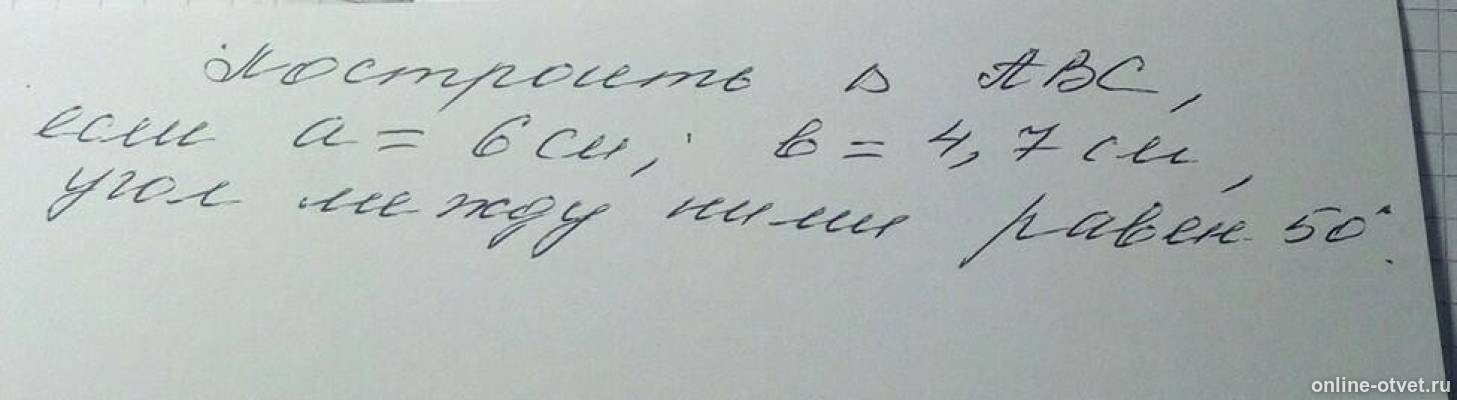 Построить Δ ABC,
если a = 6 см; в = 4,7 см,
угол между ними равен 50°.
online-otvet.ru